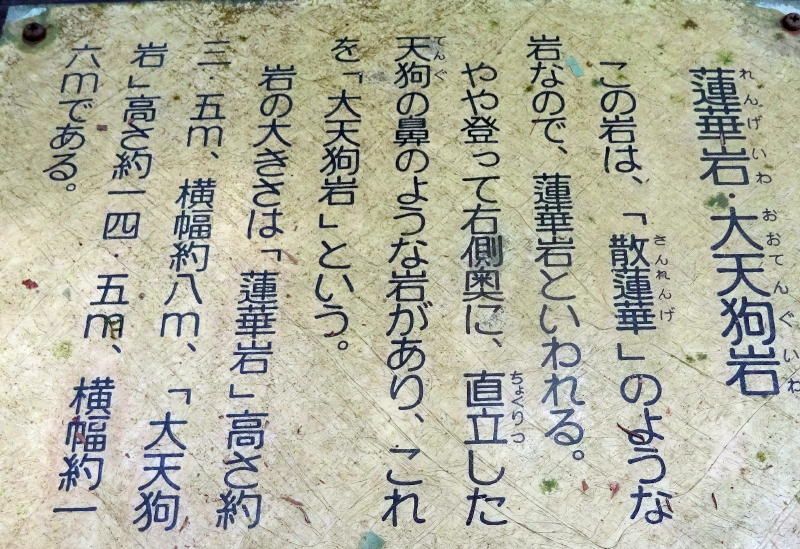 蓮華岩・大天狗岩
れんげいわ おおてんぐいわ
この岩は、「散蓮華」のような
さんれんげ
岩なので、蓮華岩といわれる。
やや登って右側奥に、直立した
ちょくりつ
天狗の鼻のような岩があり、これ
てんぐ
を「大天狗岩」という。
岩の大きさは「蓮華岩」高さ約
三・五m、横幅約八m、「大天狗
岩」高さ約一四・五m、横幅約一
六mである。